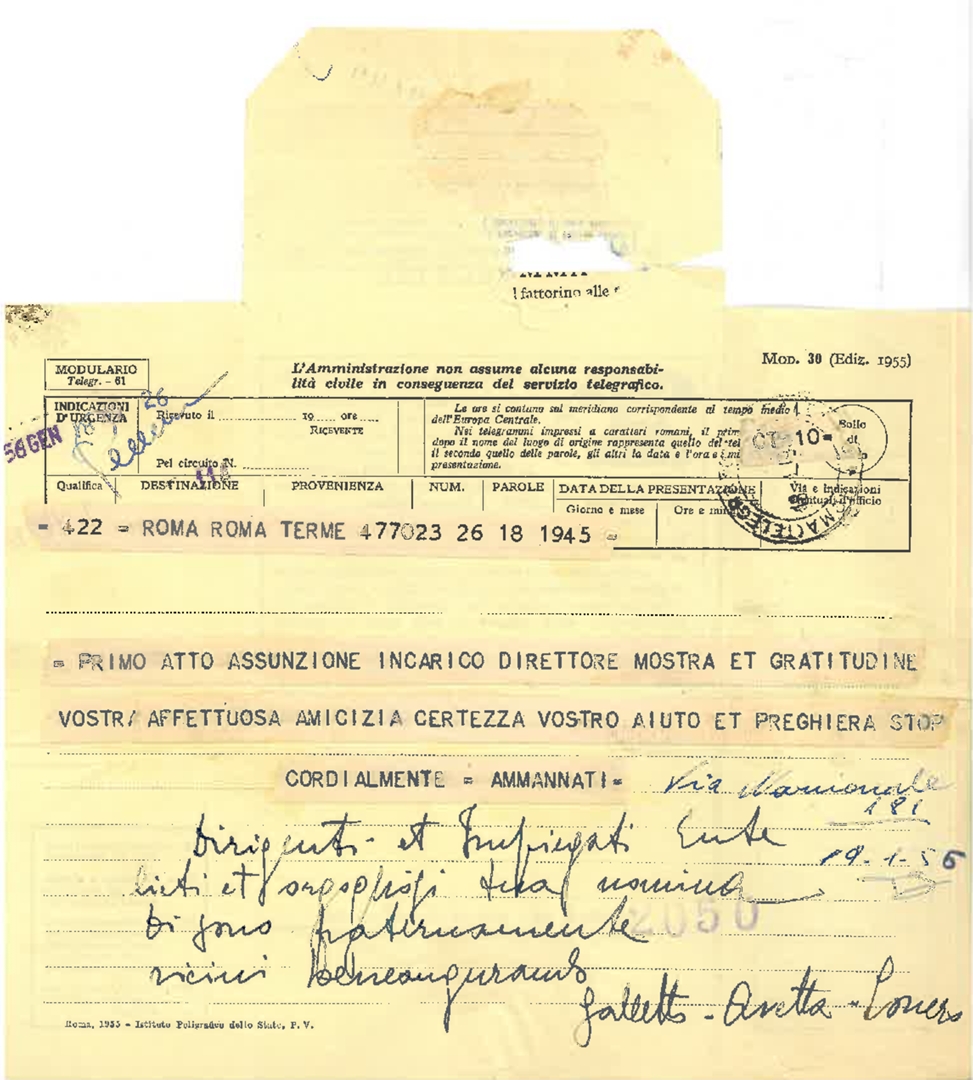 l fattorino alle
Mod. 30 (Ediz. 1955)
MODULARIO
Telegr. - 61
L'Amministrazione non assume alcuna responsabi-
lità civile in conseguenza del servizio telegrafico.
INDICAZIONI
D'URGENZA
26
Ricevuto il 19 ore
RICEVENTE
Pel circuito N.
Le ore si contano sul meridiano corrispondente al tempo medio
dell'Europa Centrale.
Nei telegrammi impressi a caratteri romani, il prim
dopo il nome del luogo di origine rappresenta quello del tel
il secondo quello delle parole, gli altri la data e l'ora e i mi
presentazione.
Bollo
di
56 GEN
Qualifica DESTINAZIONE PROVENIENZA NUM. PAROLE DATA DELLA PRESENTAZIONE Via e Indicazioni
Giorno e mese Ore e minu
eventuali d'ufficio
= 422 = ROMA ROMA TERME 477023 26 18 1945 =
= PRIMO ATTO ASSUNZIONE INCARICO DIRETTORE MOSTRA ET GRATITUDINE
VOSTRA AFFETTUOSA AMICIZIA CERTEZZA VOSTRO AIUTO ET PREGHIERA STOP
CORDIALMENTE = AMMANNATI =
Via Nazionale
181
19-1-56
Dirigenti et Impiegati Ente
lieti et orgogliosi tua nomina
Ti sono fraternamente
vicini beneaugurando
2050
Galletto - Avetta -
Roma, 1955 - Istituto Poligrafico dello Stato, P. V.